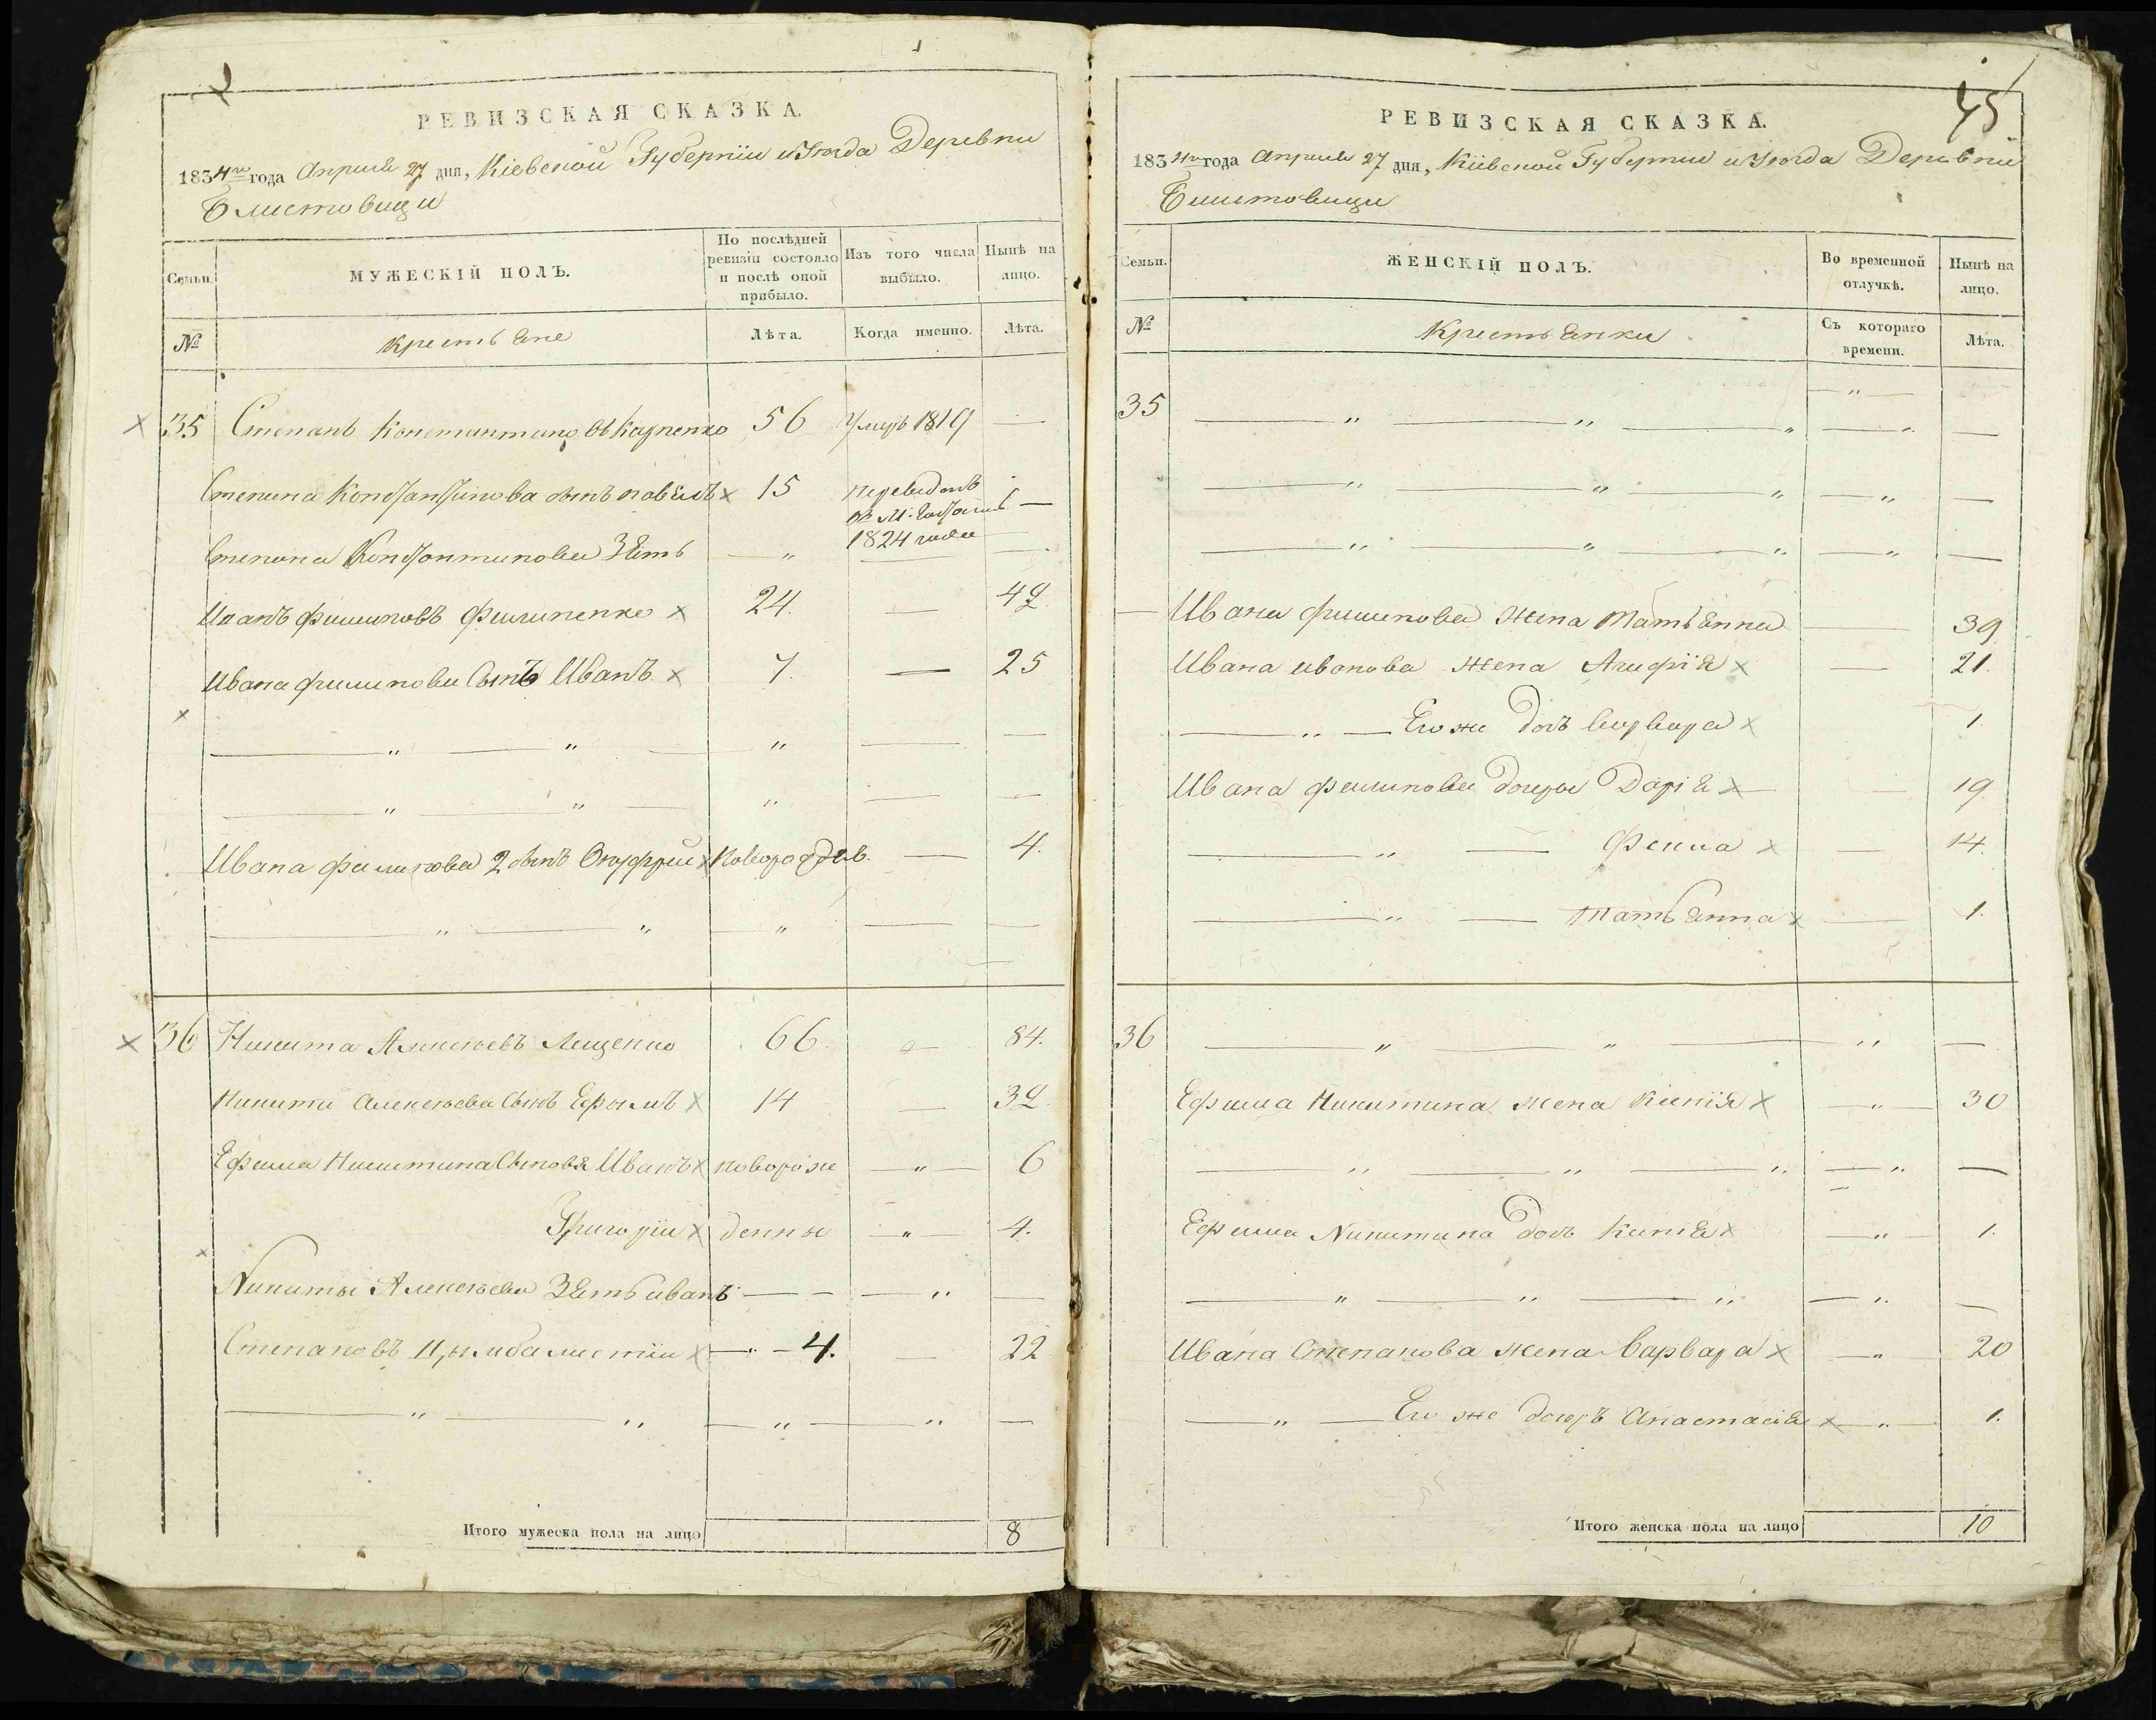 РЕВИЗСКАЯ СКАЗКА.
1834го года Апреля 27 дня, Кіевской Губерніи и Уѣзда Деревни
Блистовици
Семьи.
МУЖЕСКІЙ ПОЛЪ.
По послѣдней ревизіи состояло и послѣ оной прибыло.
Изъ того числа выбыло.
Нынѣ на лицо.
№
Крестьяне
Лѣта.
Когда именно.
Лѣта.
35 Степанъ Константиновъ Карпенко 56 Умръ 1819 —
Степана Константинова сынъ Павелъ 15 переведенъ
1824 года —
Степана Константинова Зять — „
Иванъ Филиповъ Филипенко 24. — 42
Ивана Филипова Сынъ Иванъ 7. — 25
— „ — „ — „ — —
— „ — „ — „ — —
Ивана Филипова 2 сынъ Онуфрій новорожден. — 4.
— „ — „ — „ — —
36 Никита Алексѣевъ Лещенко 66. — 84.
Никиты Алексѣева Сынъ Ефимъ 14 — 32
Ефима Никитина Сыновя Иванъ новорож — „ — 6
Григорій денны — „ — 4.
Никиты Алексѣева Зять Иванъ — — — „ —
Степановъ — „ — 4. — 22
— „ — „ — „ — „ —
Итого мужеска пола на лицо 8
45
РЕВИЗСКАЯ СКАЗКА.
1834го года Апреля 27 дня, Кіевской Губерніи и Уѣзда Деревни
Блистовици
Семьи.
ЖЕНСКІЙ ПОЛЪ.
Во временной отлучкѣ.
Нынѣ на лицо.
№
Крестьянки
Съ котораго времени.
Лѣта.
35 — „ — „ — „ — „ —
— „ — „ — „ — „ —
— „ — „ — „ — „ —
Ивана Филипова Жена Татьянна — 39
Ивана Иванова жена Агафія — 21.
— „ — Его же дочь Варвара 1
Ивана Филипова дочери Дарія — 19
— „ — Фенна — 14.
— „ — Татьянна — 1.
36 — „ — „ — „ —
Ефима Никитина жена Ксенія — „ — 30
— „ — „ — „ — „ —
Ефима Никитина дочь — „ — 1.
— „ — „ — „ — „ —
Ивана Степанова жена Варвара — „ 20
— „ — Его же дочеръ Анастасія — „ — 1.
Итого женска пола на лицо 10